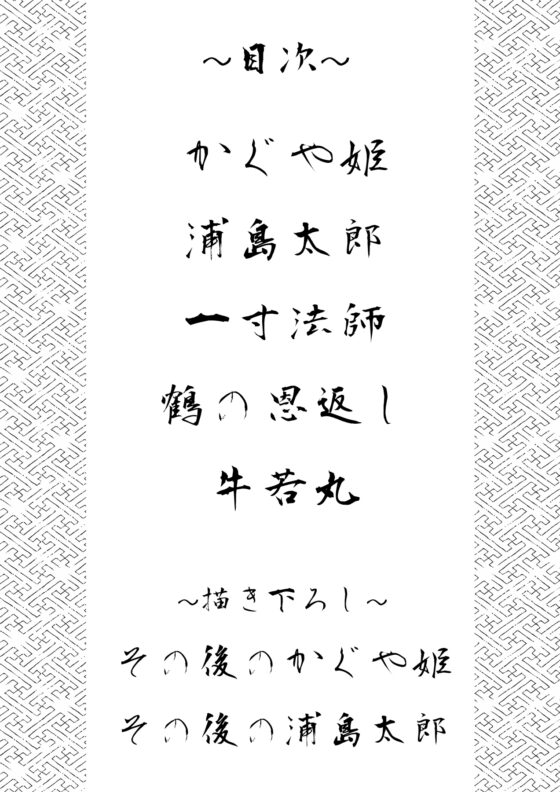 ～目次～
かぐや姫
浦島太郎
一寸法師
鶴の恩返し
牛若丸
～描き下ろし～
その後のかぐや姫
その後の浦島太郎